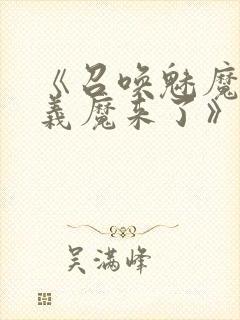 《召唤魅魔
義魔来了》
吴满峰